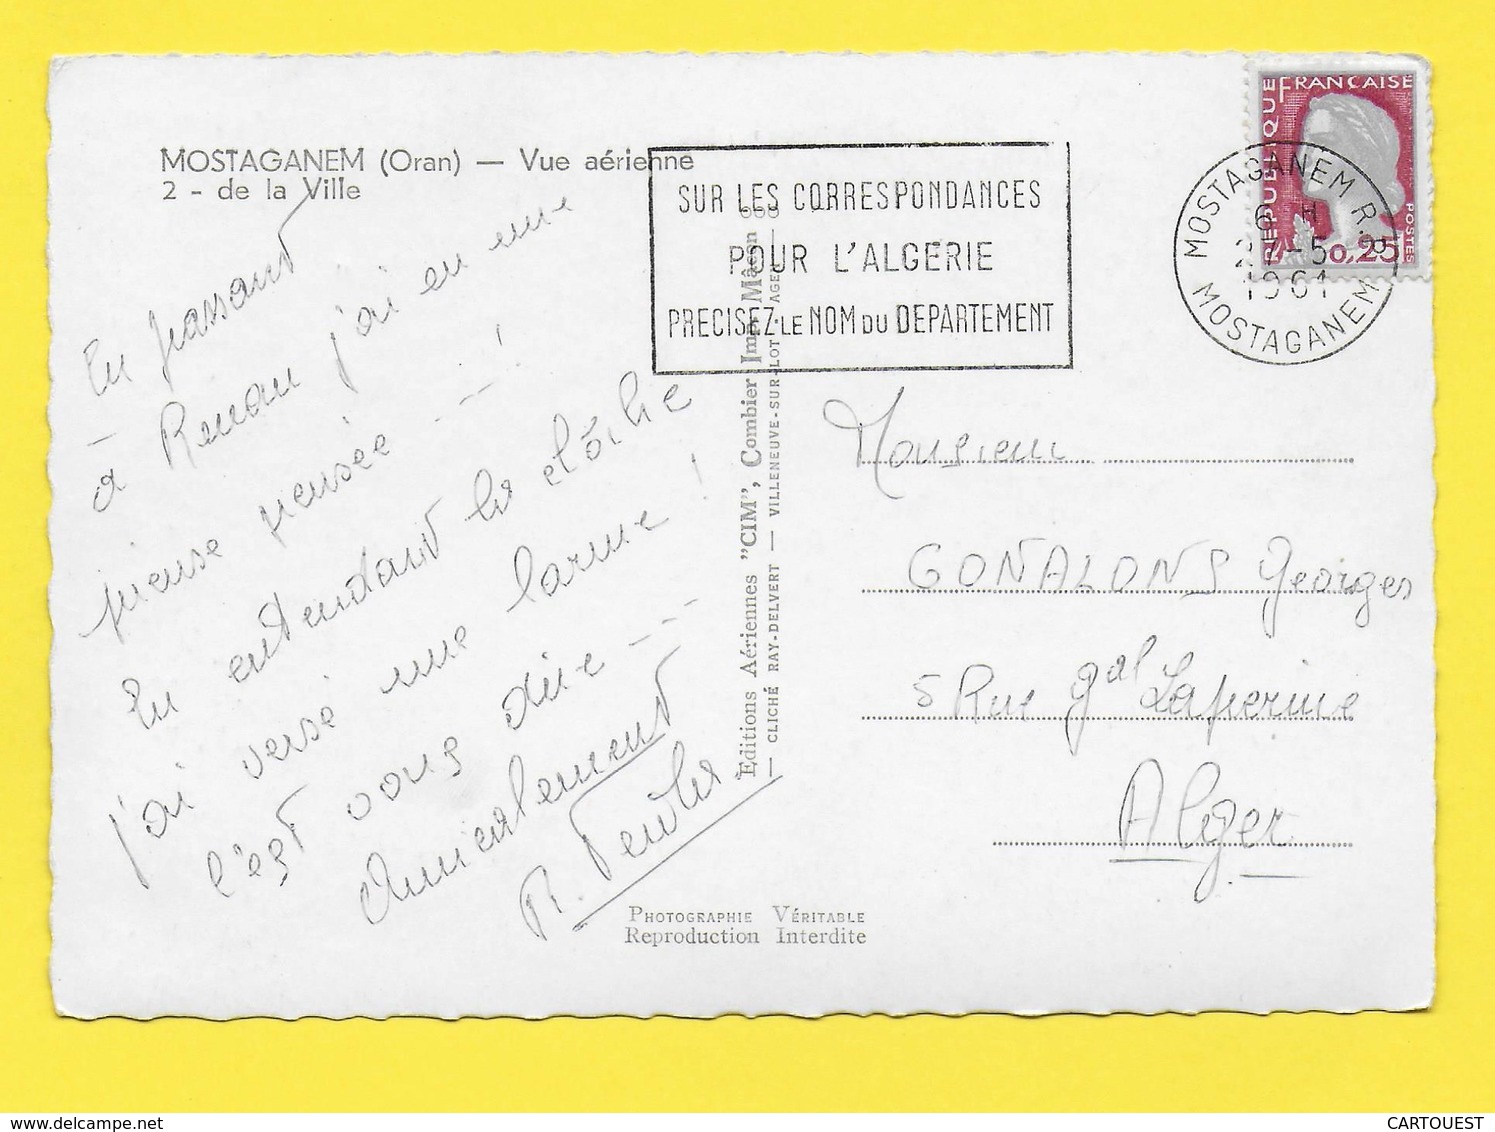 MOSTAGANEM (Oran) — Vue aérienne
2 - de la Ville
En passant
à Renan j'ai eu une
pieuse pensée --- !
En entendant la clôche
j'ai versé une larme !
c'est vous dire ---
Amicalement
R.
SUR LES CORRESPONDANCES
POUR L'ALGERIE
PRECISEZ LE NOM DU DEPARTEMENT
REPUBLIQUE FRANÇAISE
POSTES
0,25
MOSTAGANEM R.P
6 H
-5
1961
MOSTAGANEM
Editions Aériennes "CIM", Combier Imp. Mâcon
— CLICHÉ RAY-DELVERT — VILLENEUVE-SUR-LOT
Monsieur
GONALONS Georges
5 Rue gal Laperine
Alger
PHOTOGRAPHIE VÉRITABLE
Reproduction Interdite
CARTOUEST